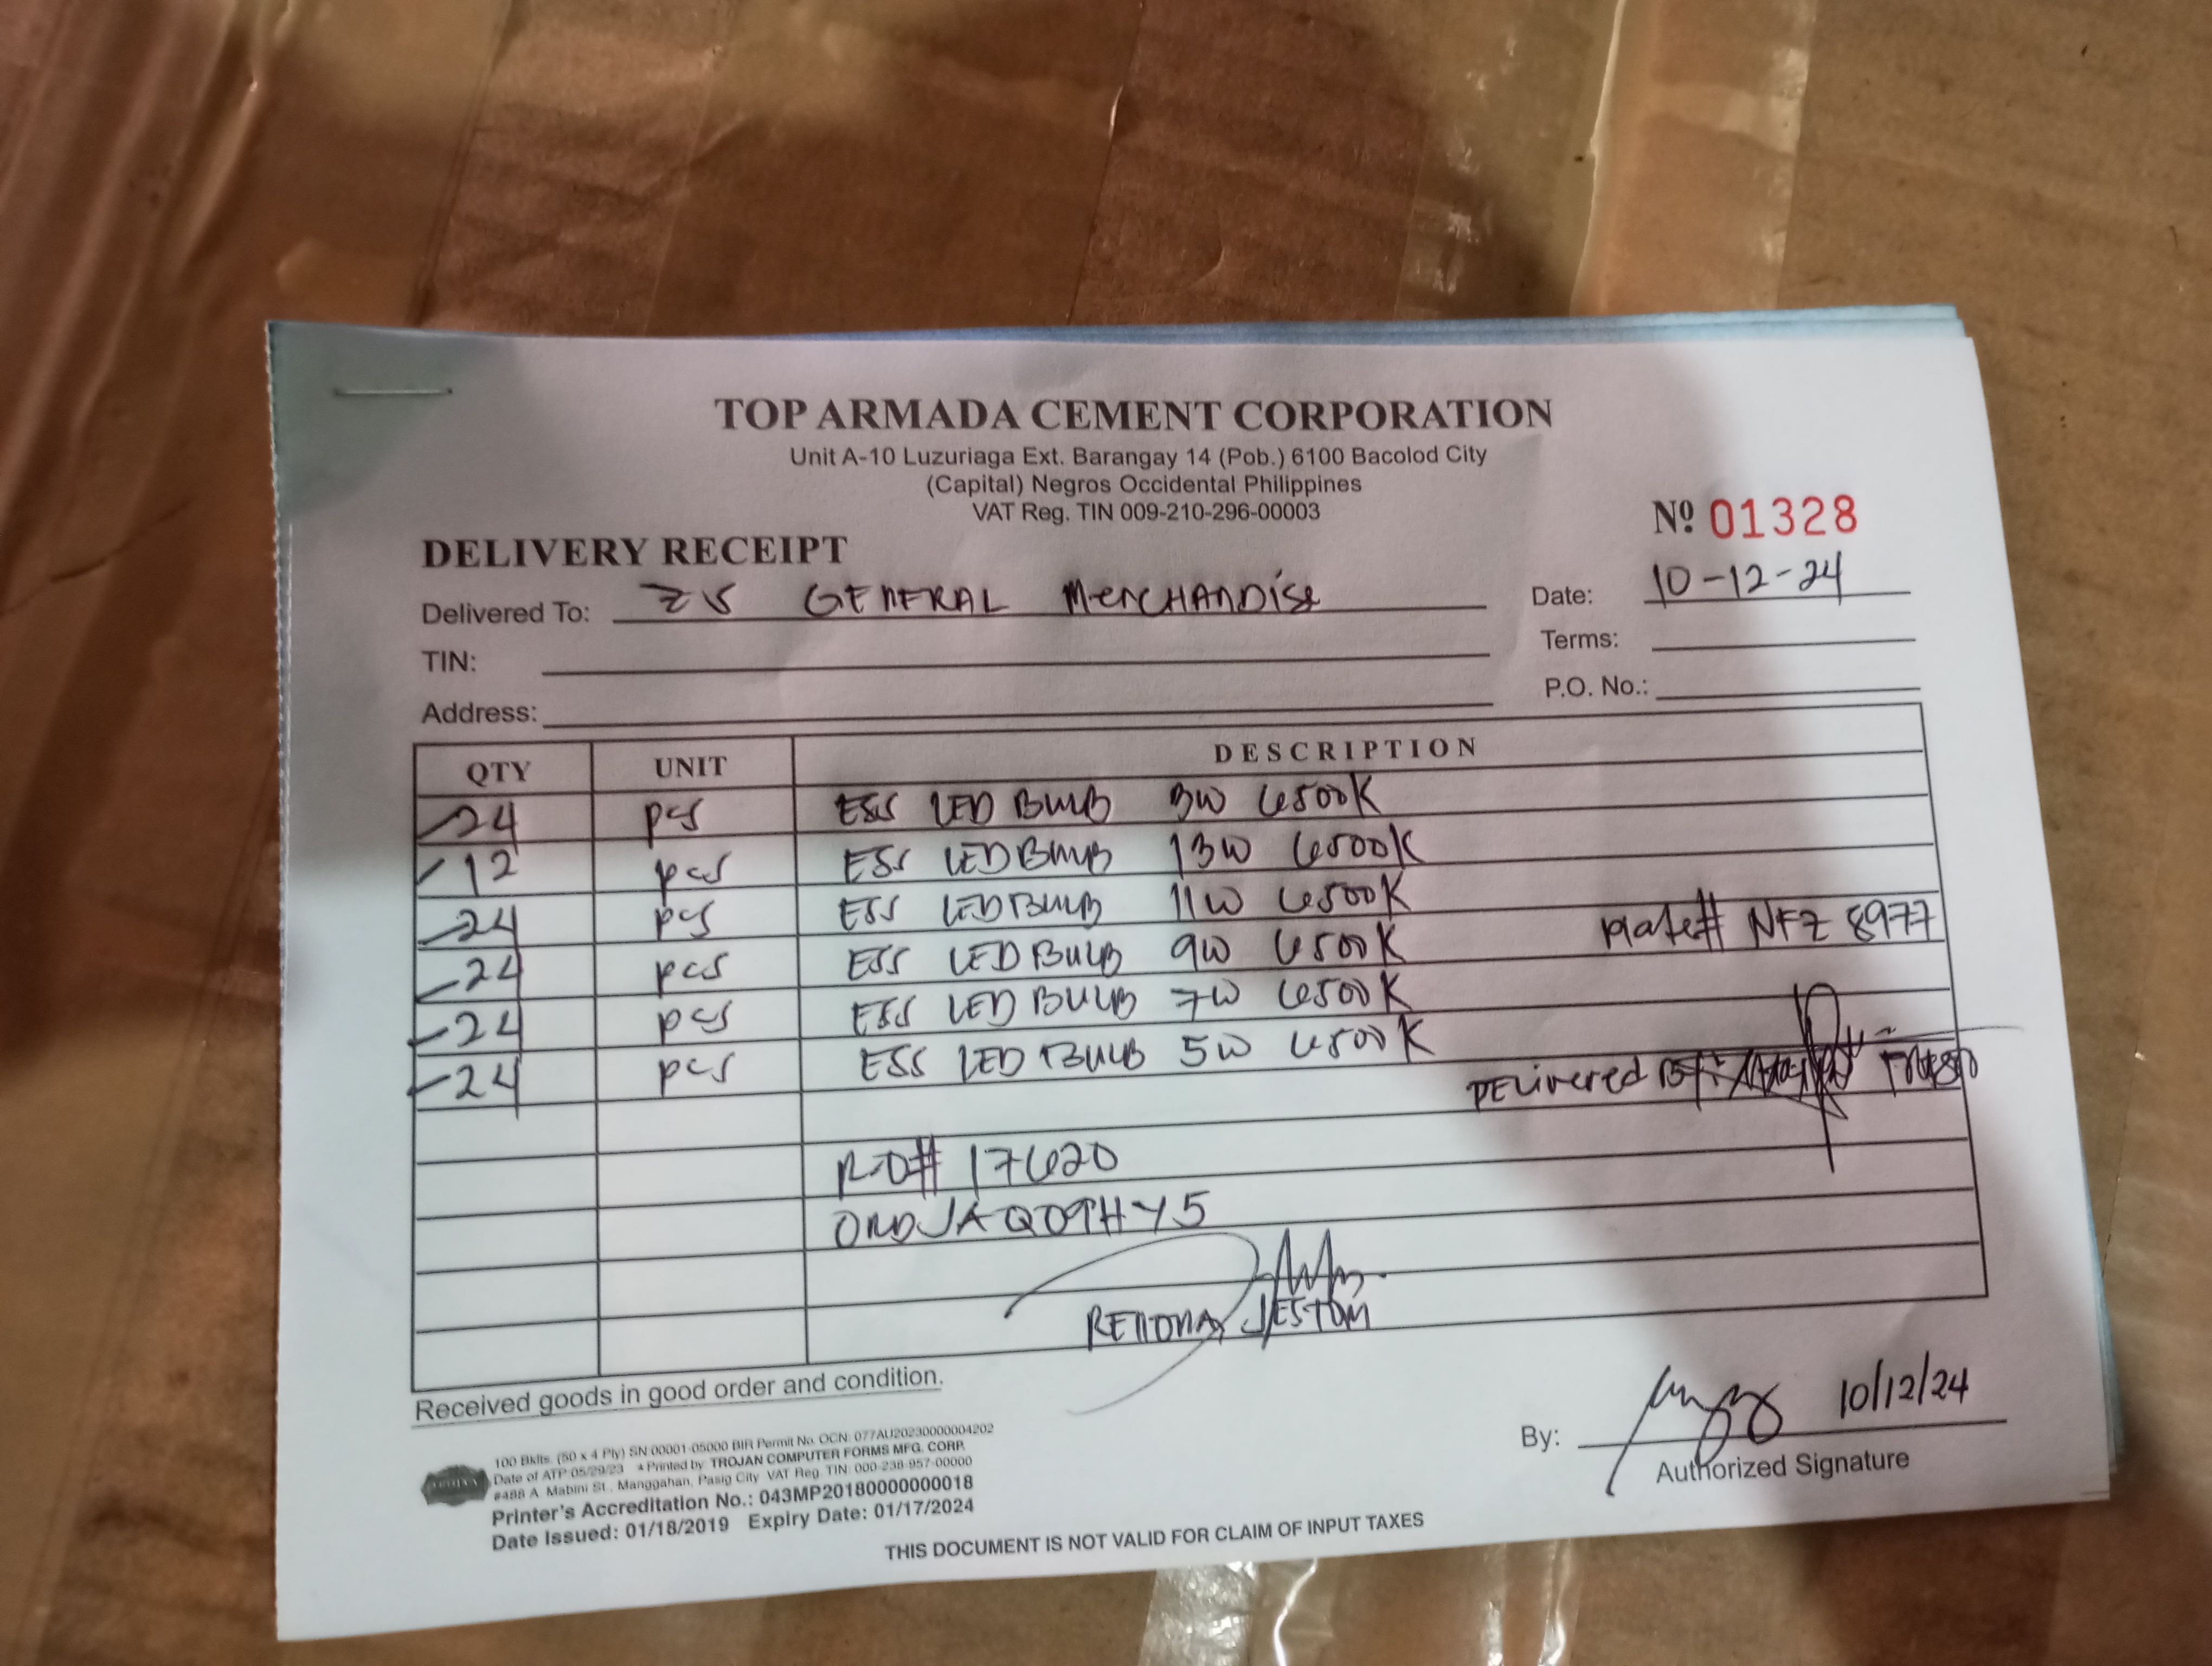 TOP ARMADA CEMENT CORPORATION
Unit A-10 Luzuriaga Ext. Barangay 14 (Pob.) 6100 Bacolod City
(Capital) Negros Occidental Philippines
VAT Reg. TIN 009-210-296-00003
Nº 01328
DELIVERY RECEIPT
Delivered To: GENERAL MercHANDise
Date: 10-12-24
TIN:
Terms:
Address:
P.O. No.:
QTY UNIT DESCRIPTION
24 pcs ESS LED BULB 3W 6500K
12 pcs ESS LED BULB 13W 6500K
24 pcs ESS LED BULB 11W 6500K
Plate# NFZ 8977
24 pcs ESS LED BULB 9W 6500K
24 pcs ESS LED BULB 7W 6500K
24 pcs ESS LED BULB 5W 6500K
DELivered By:
17620
JESTOM
Received goods in good order and condition.
By: 10/12/24
Authorized Signature
100 Bklts. (50 x 4 Ply) SN 00001-05000 BIR Permit No. OCN: 077AU20230000004202
Date of ATP 05/29/23 Printed by TROJAN COMPUTER FORMS MFG. CORP.
#488 A. Mabini St., Manggahan, Pasig City VAT Reg. TIN: 000-238-957-00000
Printer's Accreditation No.: 043MP20180000000018
Date Issued: 01/18/2019 Expiry Date: 01/17/2024
THIS DOCUMENT IS NOT VALID FOR CLAIM OF INPUT TAXES